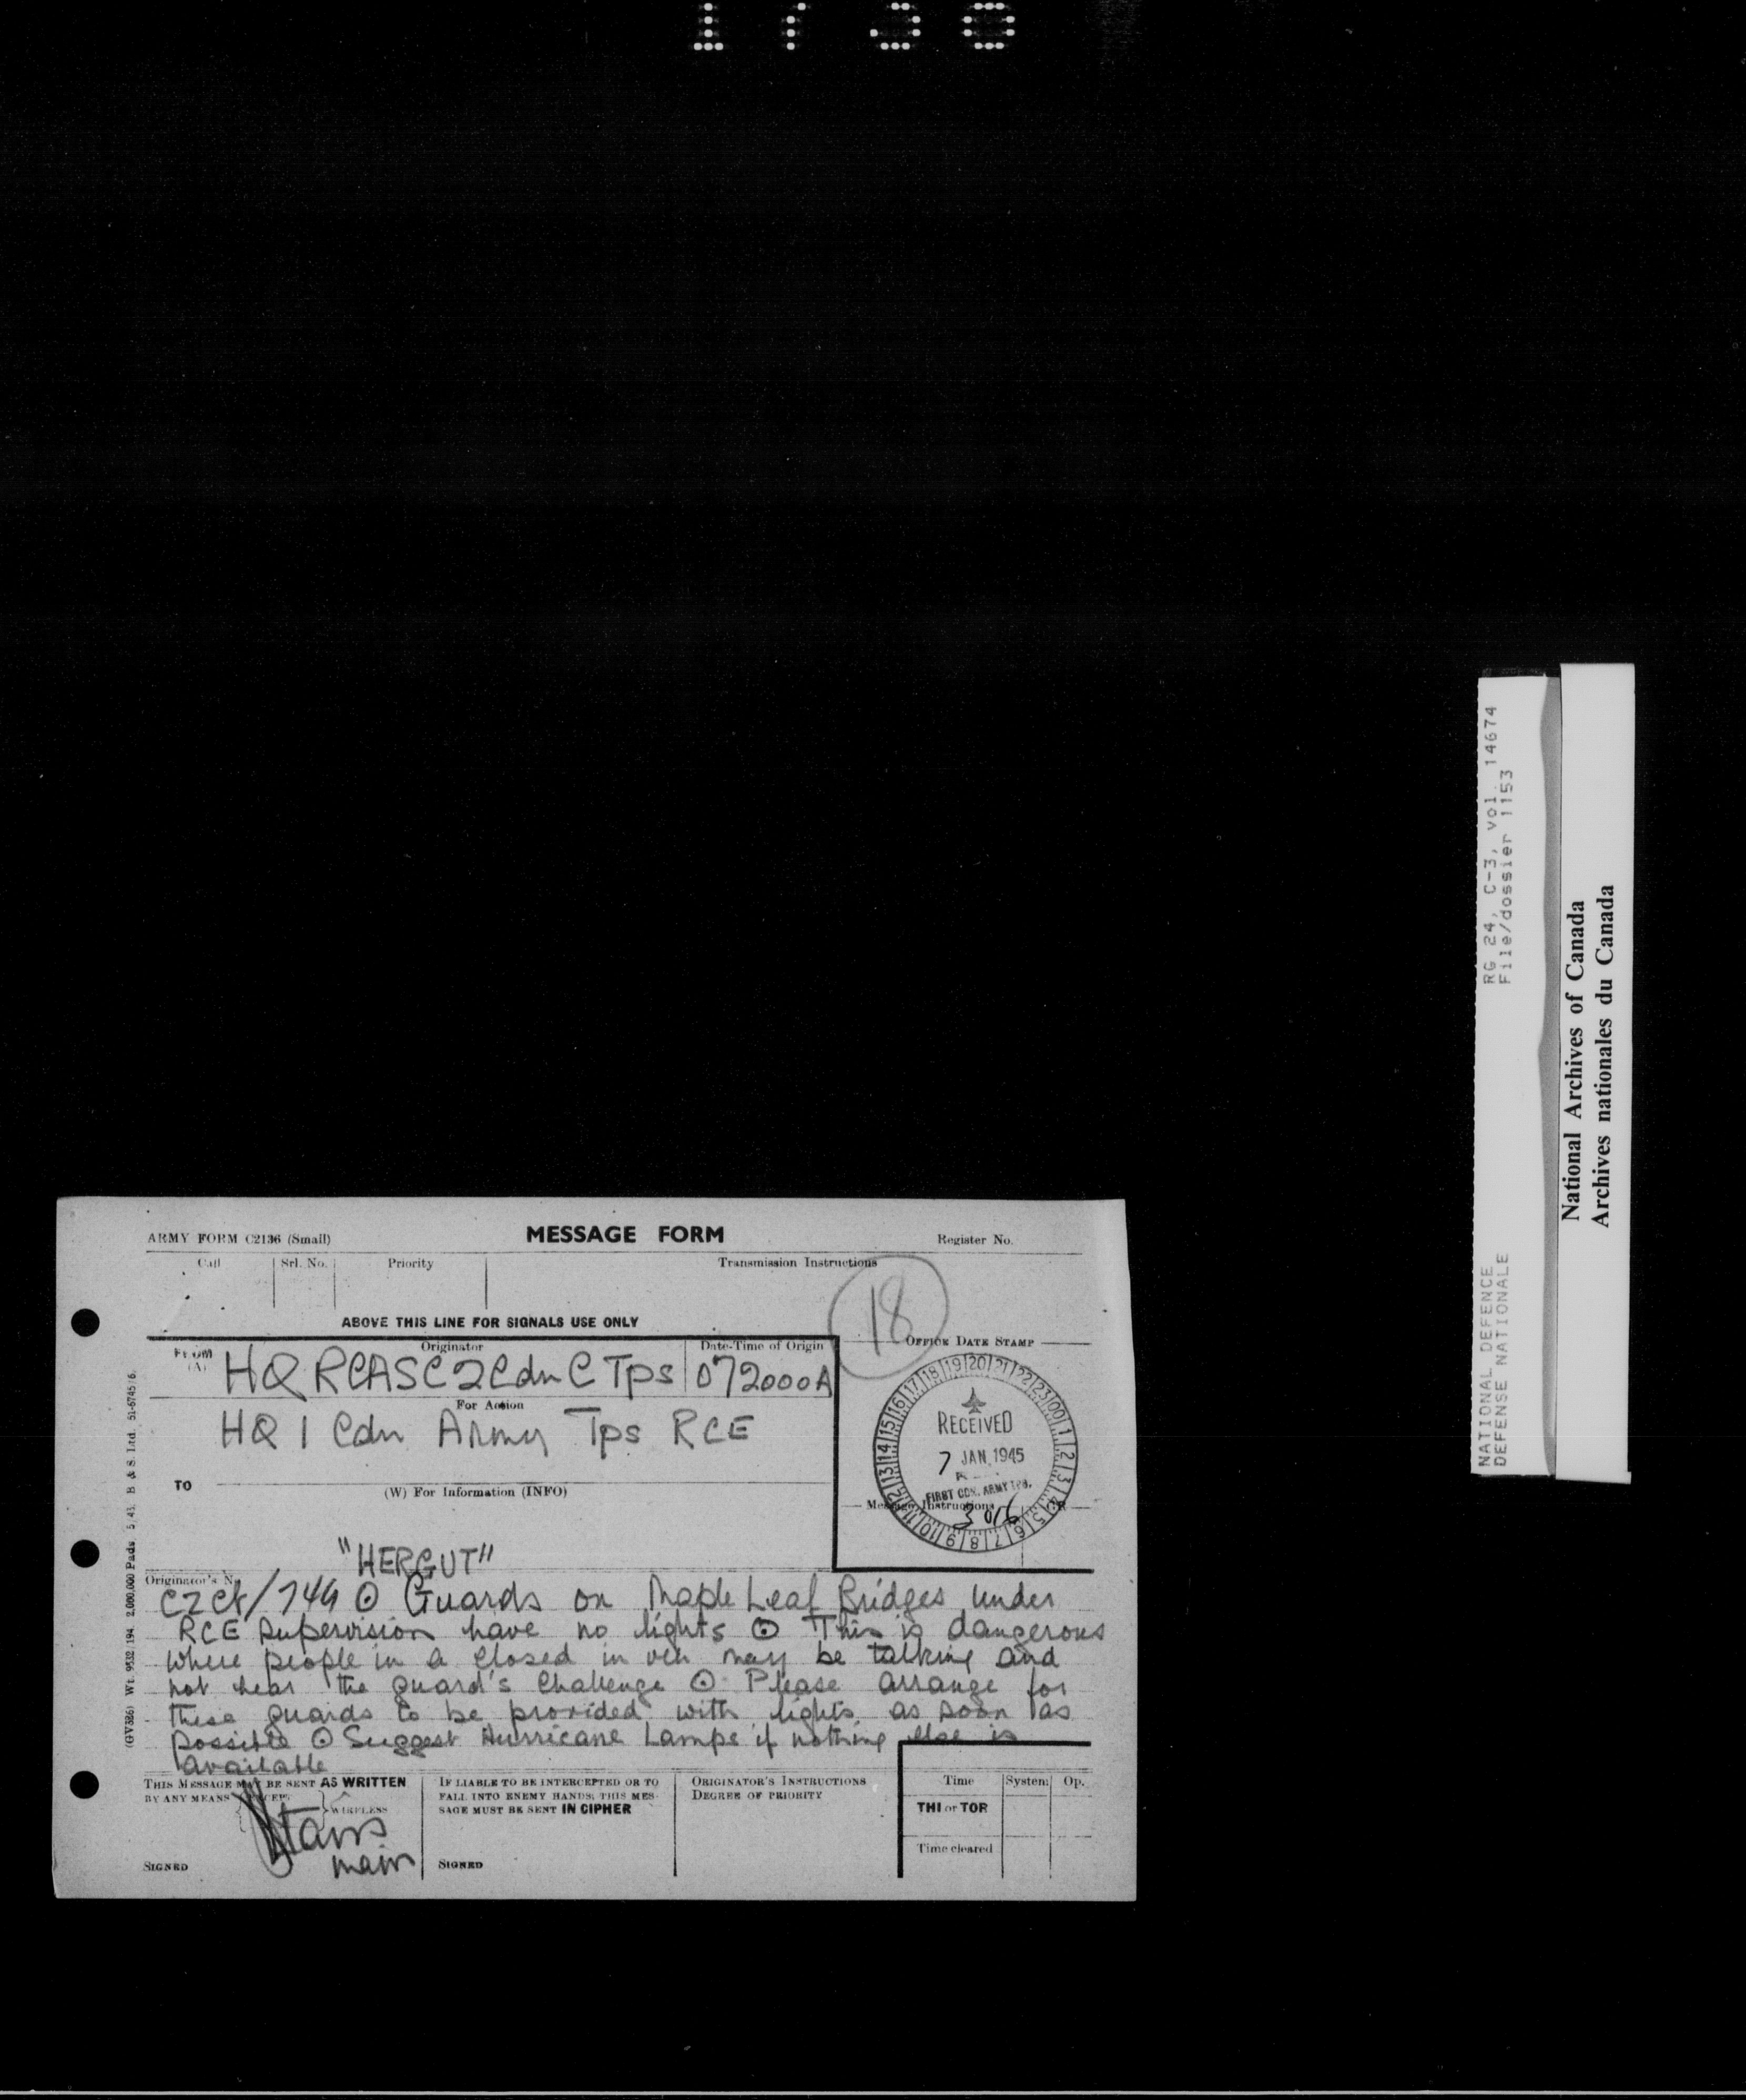 1738
ARMY FORM C2136 (Small)
MESSAGE FORM
Register No.
Call
Srl. No.
Priority
Transmission Instructions
ABOVE THIS LINE FOR SIGNALS USE ONLY
18
FROM (A)
Originator
HQ RCASC 2 Cdn C Tps
Date-Time of Origin
072000A
OFFICE DATE STAMP
For Action
HQ 1 Cdn Army Tps RCE
TO
(W) For Information (INFO)
RECEIVED
7 JAN. 1945
FIRST CDN. ARMY TPS.
Message Instructions
"HERGUT"
Originator's No.
Guards on Maple Leaf Bridges under
RCE supervision have no lights ⊙ This is dangerous
where people in a closed in veh may be talking and
not hear the guard's challenge ⊙ Please arrange for
these guards to be provided with lights as soon as
possible ⊙ Suggest Hurricane Lamps if nothing else is
available
THIS MESSAGE MAY BE SENT AS WRITTEN
BY ANY MEANS EXCEPT WIRELESS
SIGNED
IF LIABLE TO BE INTERCEPTED OR TO
FALL INTO ENEMY HANDS, THIS MES-
SAGE MUST BE SENT IN CIPHER
SIGNED
ORIGINATOR'S INSTRUCTIONS
DEGREE OF PRIORITY
Time
System
Op.
THI or TOR
Time cleared
RG 24, C-3, vol. 14674
File/dossier 1153
NATIONAL DEFENCE
DEFENSE NATIONALE
National Archives of Canada
Archives nationales du Canada